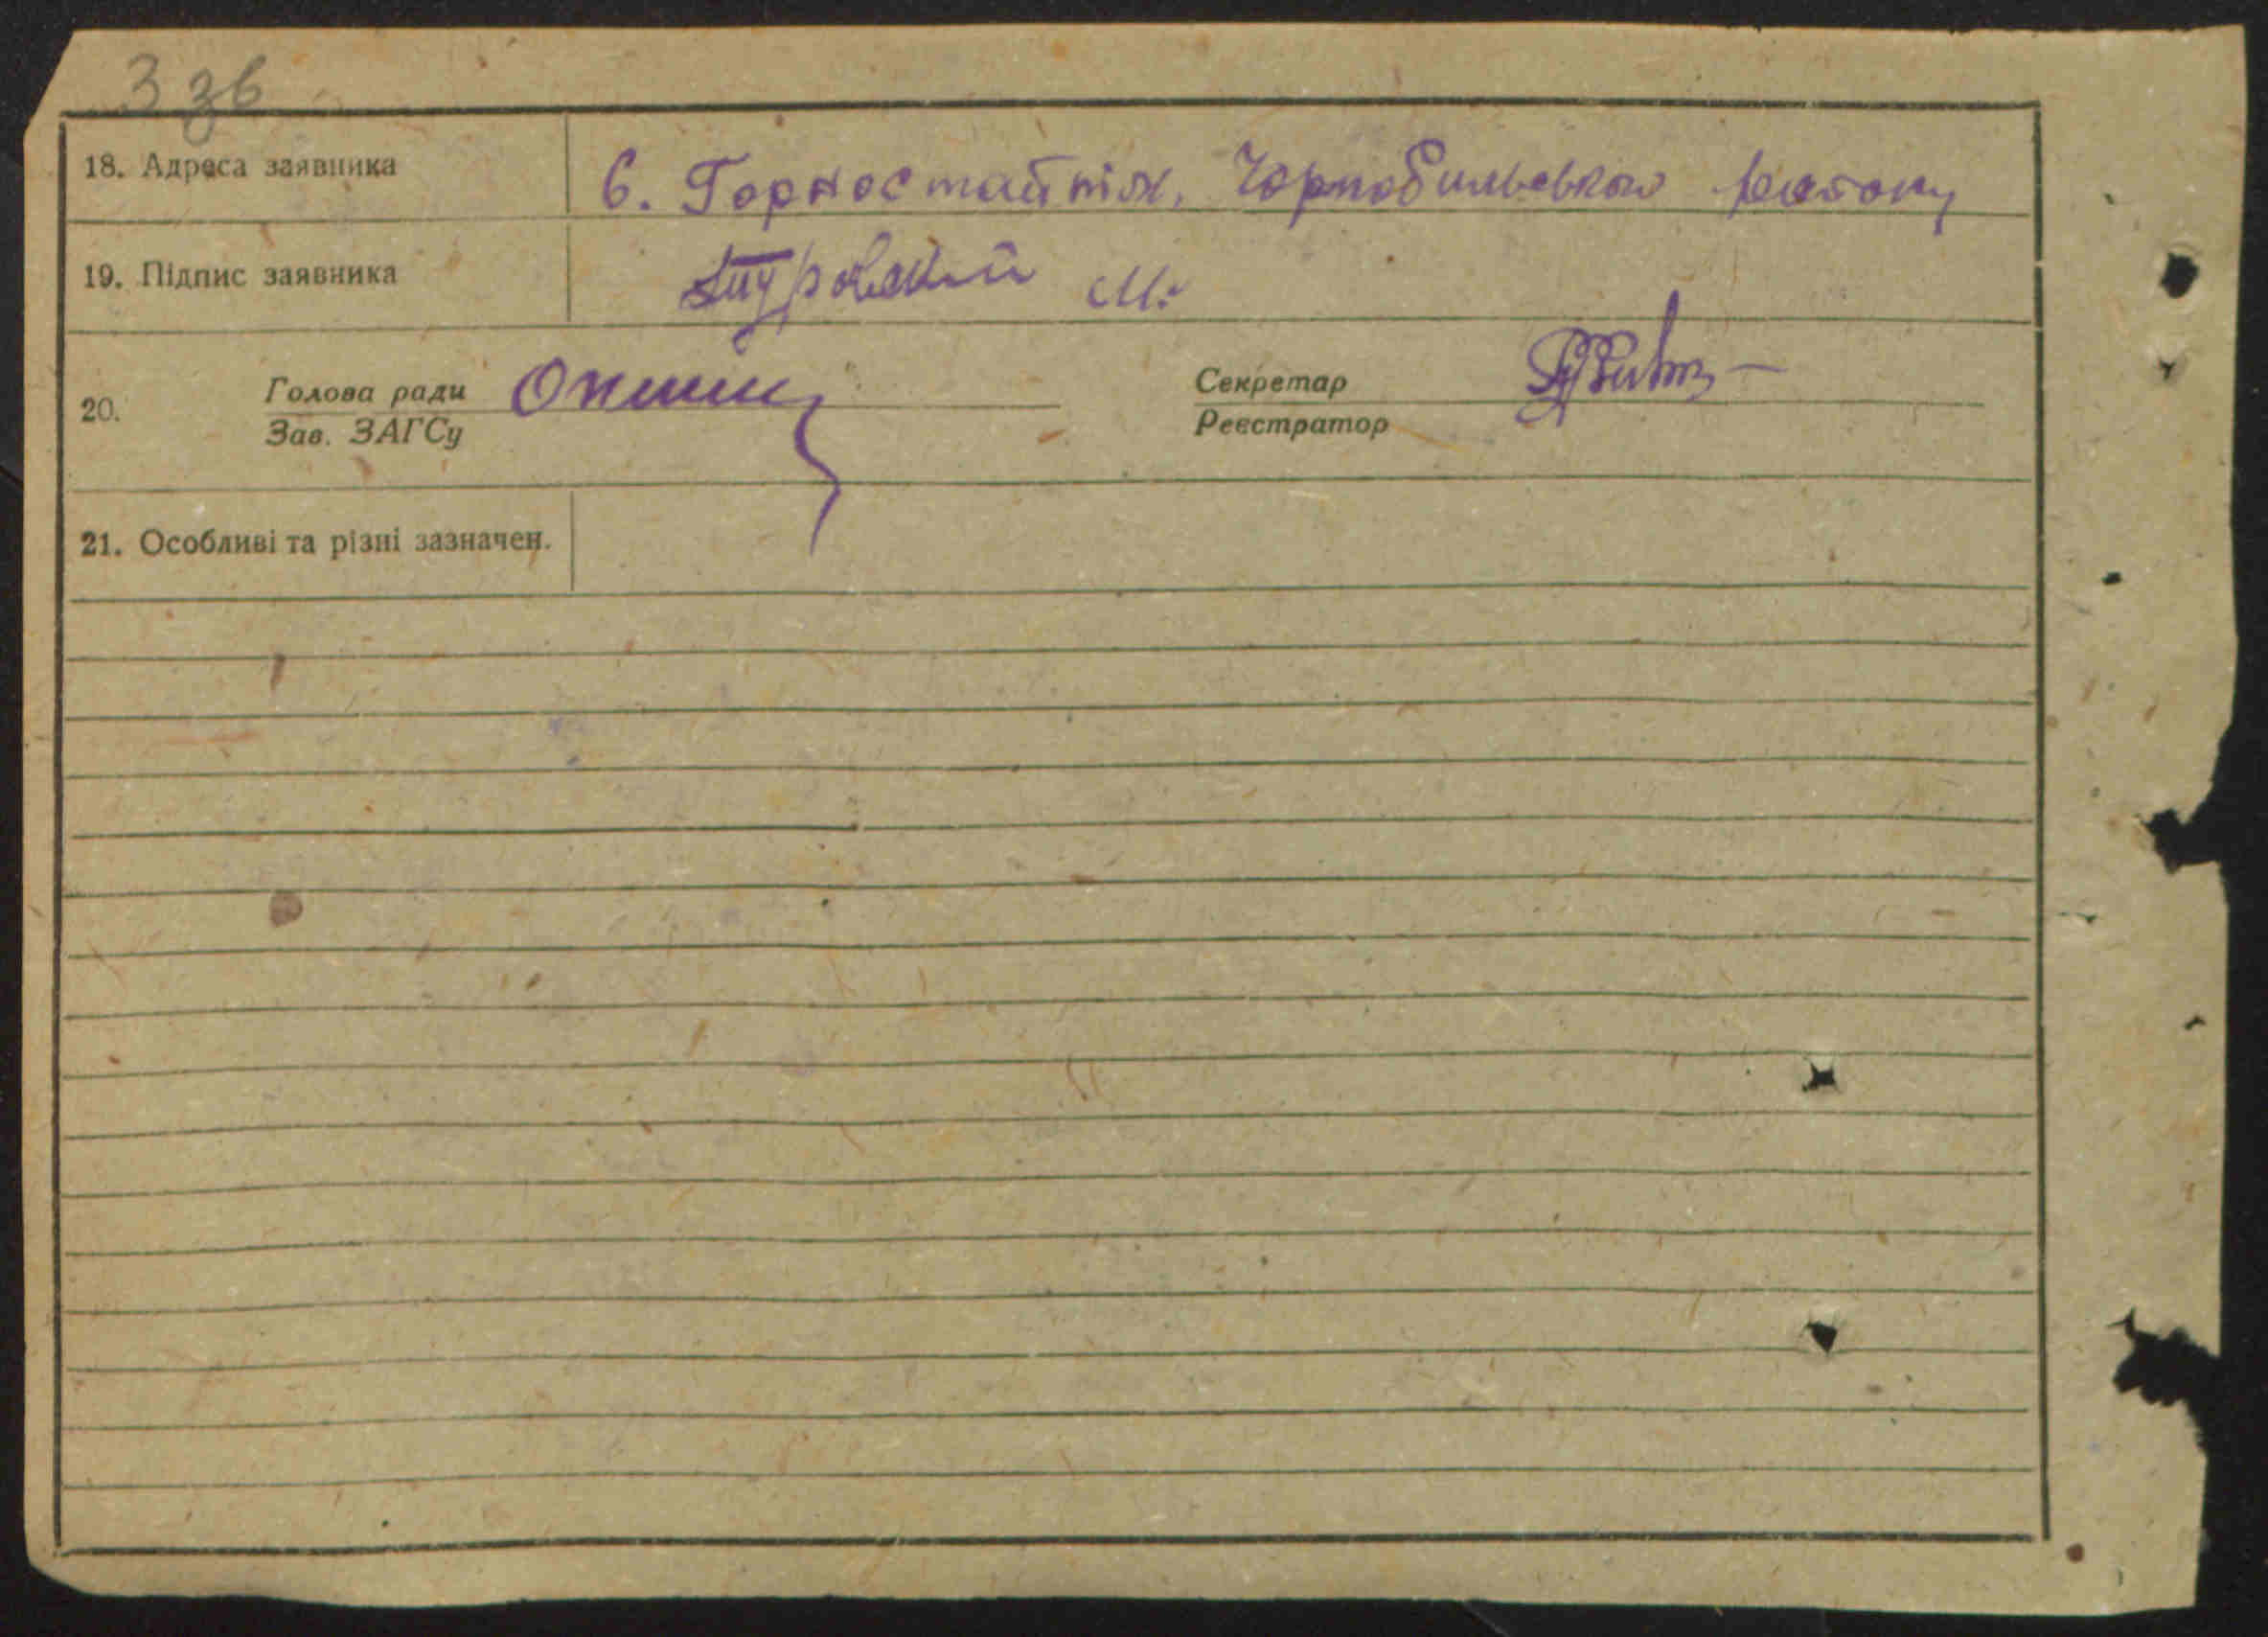 3 зв
18. Адреса заявника с. Горностайпіль, Чорнобильського району
19. Підпис заявника Туровский М.
20. Голова ради Секретар
Зав. ЗАГСу Реєстратор
21. Особливі та різні зазначен.